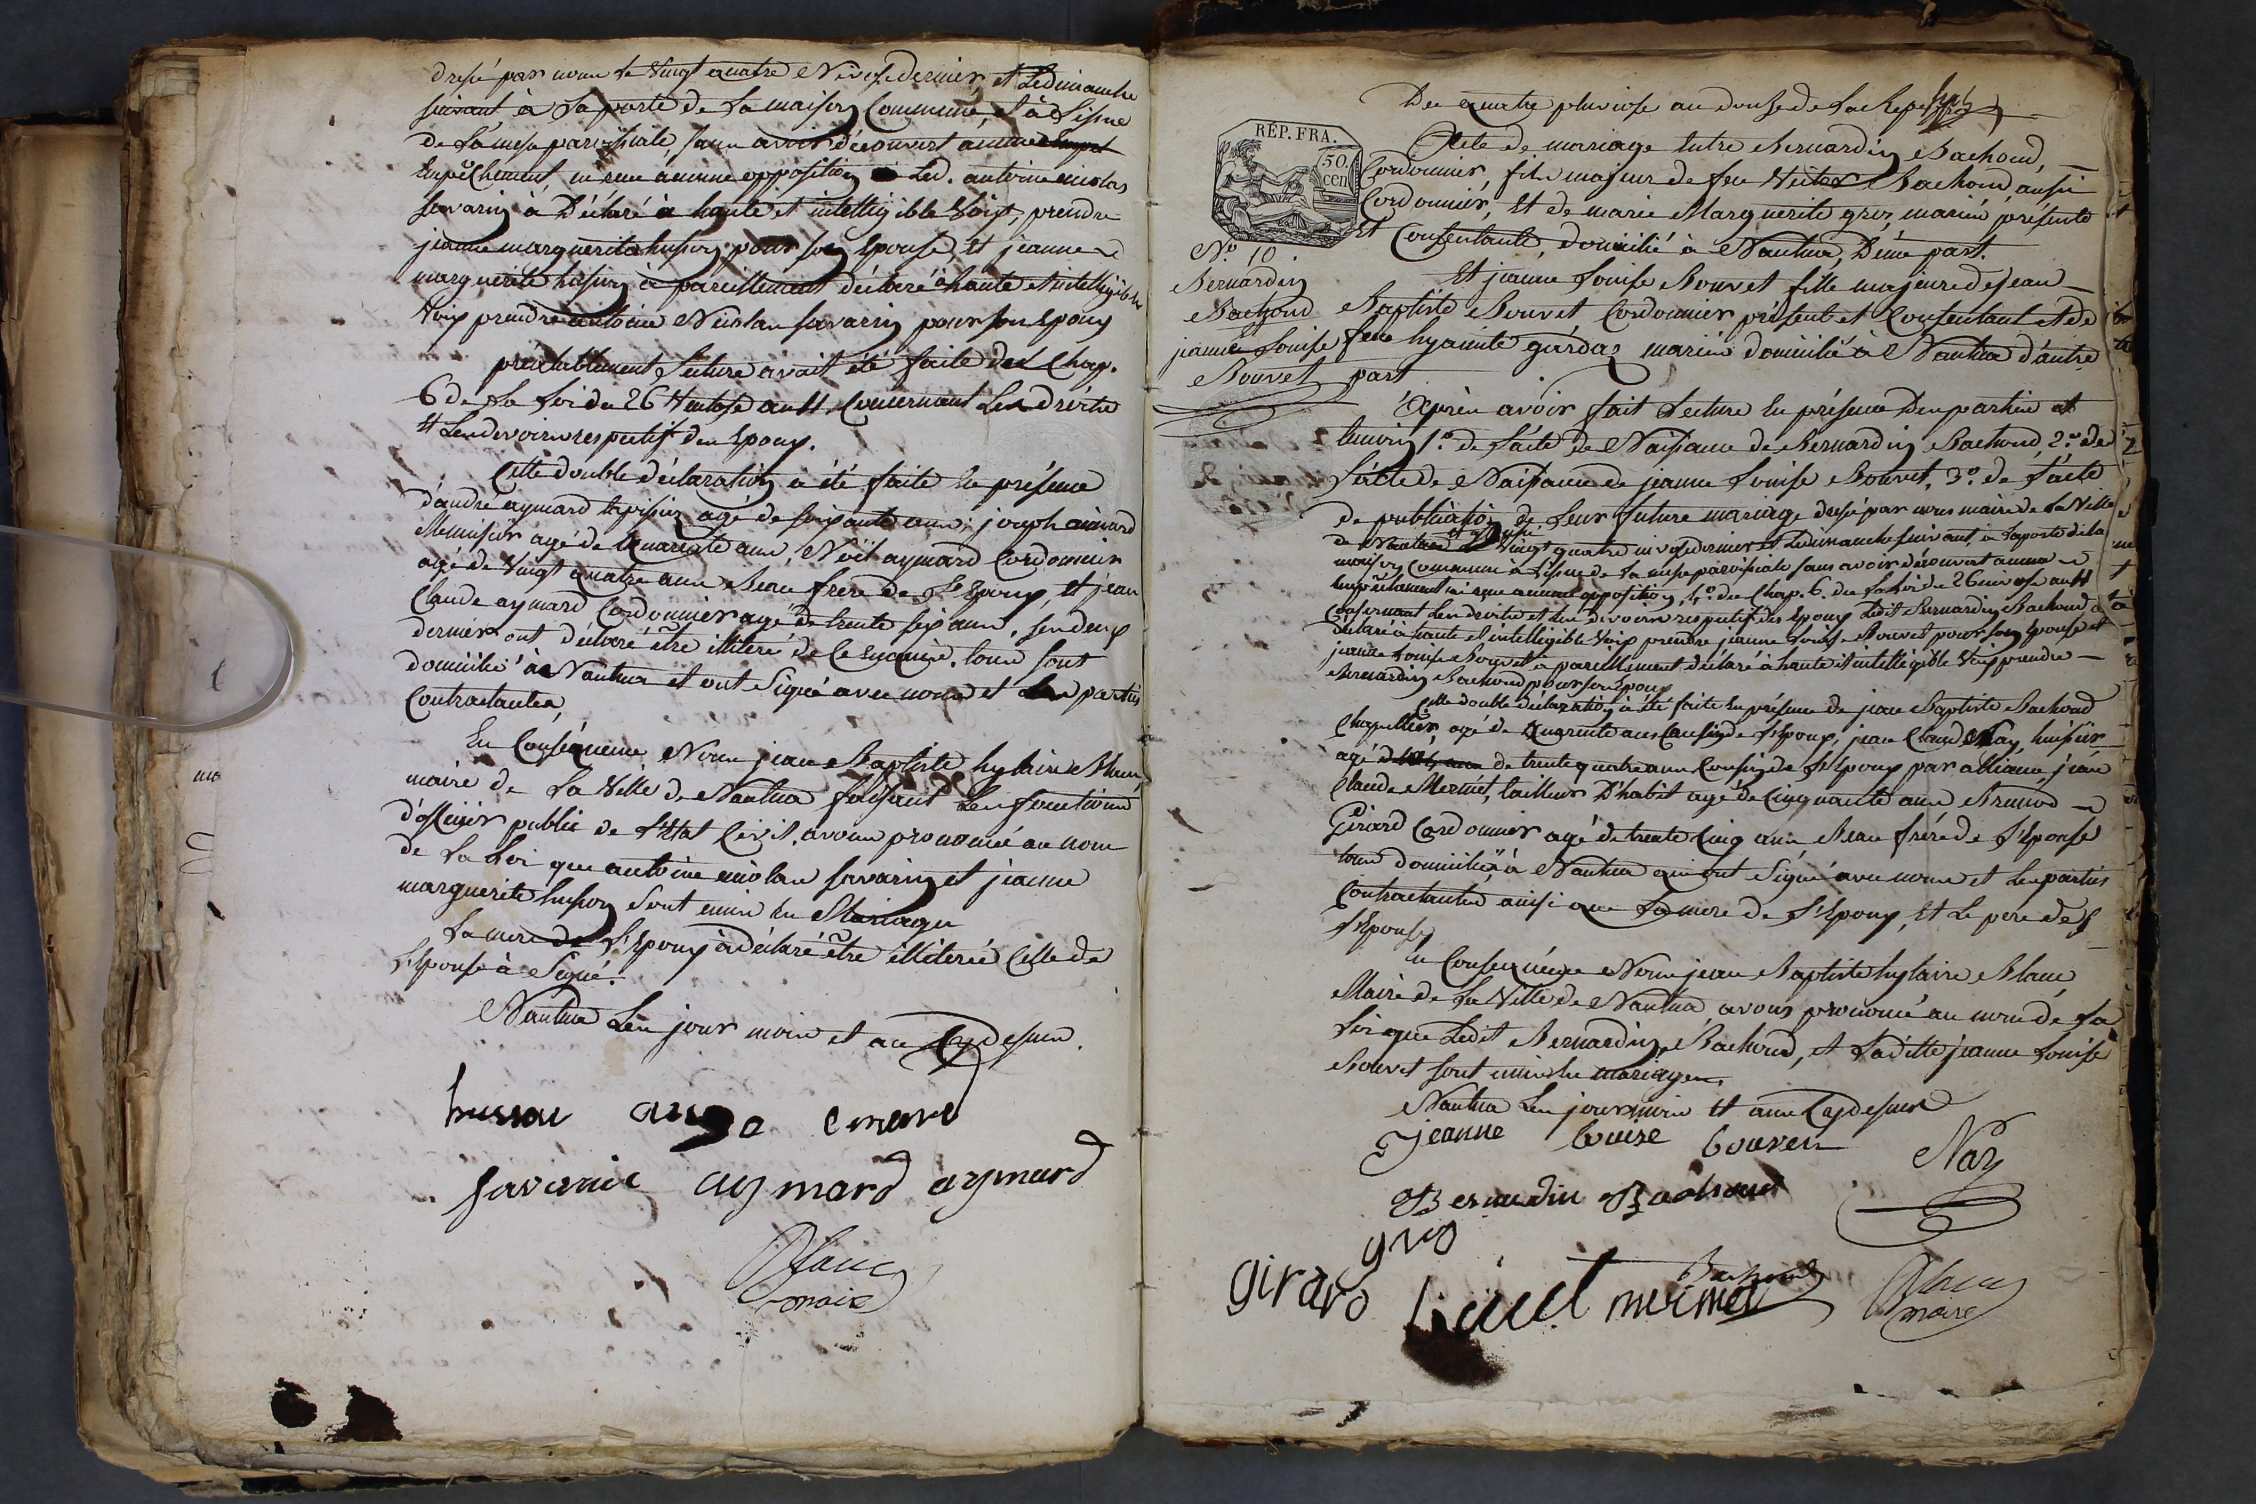 dressé par nous le Vingt quatre Nivose dernier, et Le dimanche
suivant à La porte de La maison Commune, à L'issue
de La messe paroissiale, sans avoir découvert aucun
Empêchement, ni eue aucune opposition Led. antoine nicolas
savarin à Déclaré à haute et intelligible Voix, prendre
jeanne marguerite husson pour son Epouse, Et jeanne
marguerite husson à pareillement déclaré à haute et intelligible
Voix prendre antoine Nicolas savarin pour son Epoux
préalablement Lecture avait été faite du Chap.
6 de La Loi du 26 Ventose an 11 Concernant Les droits
Et Les devoirs respectifs des Epoux.
Cette double déclaration à été faite En présence
d'andré aymard tapissier agé de soixante ans, joseph aimard
Menuisier agé de quarante ans, Noël aymard Cordonnier
agé de Vingt quatre ans Beau frere de L'Epoux, Et jean
Claude aymard Cordonnier agé de trente six ans, Les deux
derniers ont déclaré être illiteré de Ce enquis. tous sont
domicilié à Nantua et ont Signé avec nous et Les parties
Contractantes,
En Conséquence Nous jean Baptiste hylaire Blanc,
maire de La Ville de Nantua faisant Les fonctions
d'officier public de L'Etat Civil, avons prononcé au nom
de La Loi que antoine nicolas savarin et jeanne
marguerite husson Sont unis En Mariage
La mere de L'Epoux à déclaré être illiterée Celle de
L'Epouse à Signé.
Nantua Les jour mois et an Cydessus.
husson ange emard
savarin aymard aymard
Blanc
maire
Du quatre pluviose an douse de La Repe
RÉP. FRA.
50.
cen
Acte de mariage Entre Bernardin Bachoud,
Cordonnier, fils majeur de feu Victor Bachoud aussi
Cordonnier, Et de marie Marguerite gros mariés, présente
Et Consentante, domicilié à Nantua, D'une part.
N.o 10
Bernardin
Bachoud
jeanne Louise
Bouvet
Et jeanne Louise Bouvet fille majeure de jean
Baptiste Bouvet Cordonnier présent et Consentant et de
feue hyacinte gardaz mariés domicilié à Nantua d'autre
part
Après avoir fait Lecture En présence Des parties et
temoins 1.o de L'acte de Naissance de Bernardin Bachoud, 2.o de
L'acte de Naissance de jeanne Louise Bouvet, 3.o de L'acte
de publication de Leur future mariage dressé par nous maire de La Ville
de Nantua Vingt quatre nivose dernier et Le dimanche suivant, à La porte de La
maison Commune à L'issue de La messe paroissiale sans avoir découvert aucun
Empêchement ni eue aucune opposition, 4.o du Chap. 6. de La Loi du 26 nivose an 11
Concernant Les droits et Les devoirs respectifs des Epoux Ledit Bernardin Bachoud à
déclaré à haute et intelligible Voix prendre jeanne Louise Bouvet pour son Epouse et
jeanne Louise Bouvet à pareillement déclaré à haute et intelligible Voix prendre
Bernardin Bachoud pour son Epoux
Cette double déclaration à été faite En présence de jean Baptiste Bachoud
Chapellier, agé de quarante ans Cousin de L'Epoux, jean Claude Nay, huissier
agé de trente quatre ans Cousin de L'Epoux par alliance, jean
Claude Mermet, tailleur D'habit agé de Cinquante ans Brunod
Girard Cordonnier agé de trente Cinq ans Beau frére de L'Epouse
tous domiciliés à Nantua qui ont Signé avec nous et Les parties
Contractantes ainsi que La mere de L'Epoux, Et Le pere de
L'Epouse
En Conséquence Nous jean Baptiste hylaire Blanc
Maire de La Ville de Nantua avons prononcé au nom de La
Loi que Ledit Bernardin Bachoud, et Ladite jeanne Louise
Bouvet sont unis En mariage.
Nantua Les jour mois Et an Cydessus
jeanne Louise bouvet
Nay
Bernardin Bachoud
gros
girard mermet Bachoud
Blanc
maire